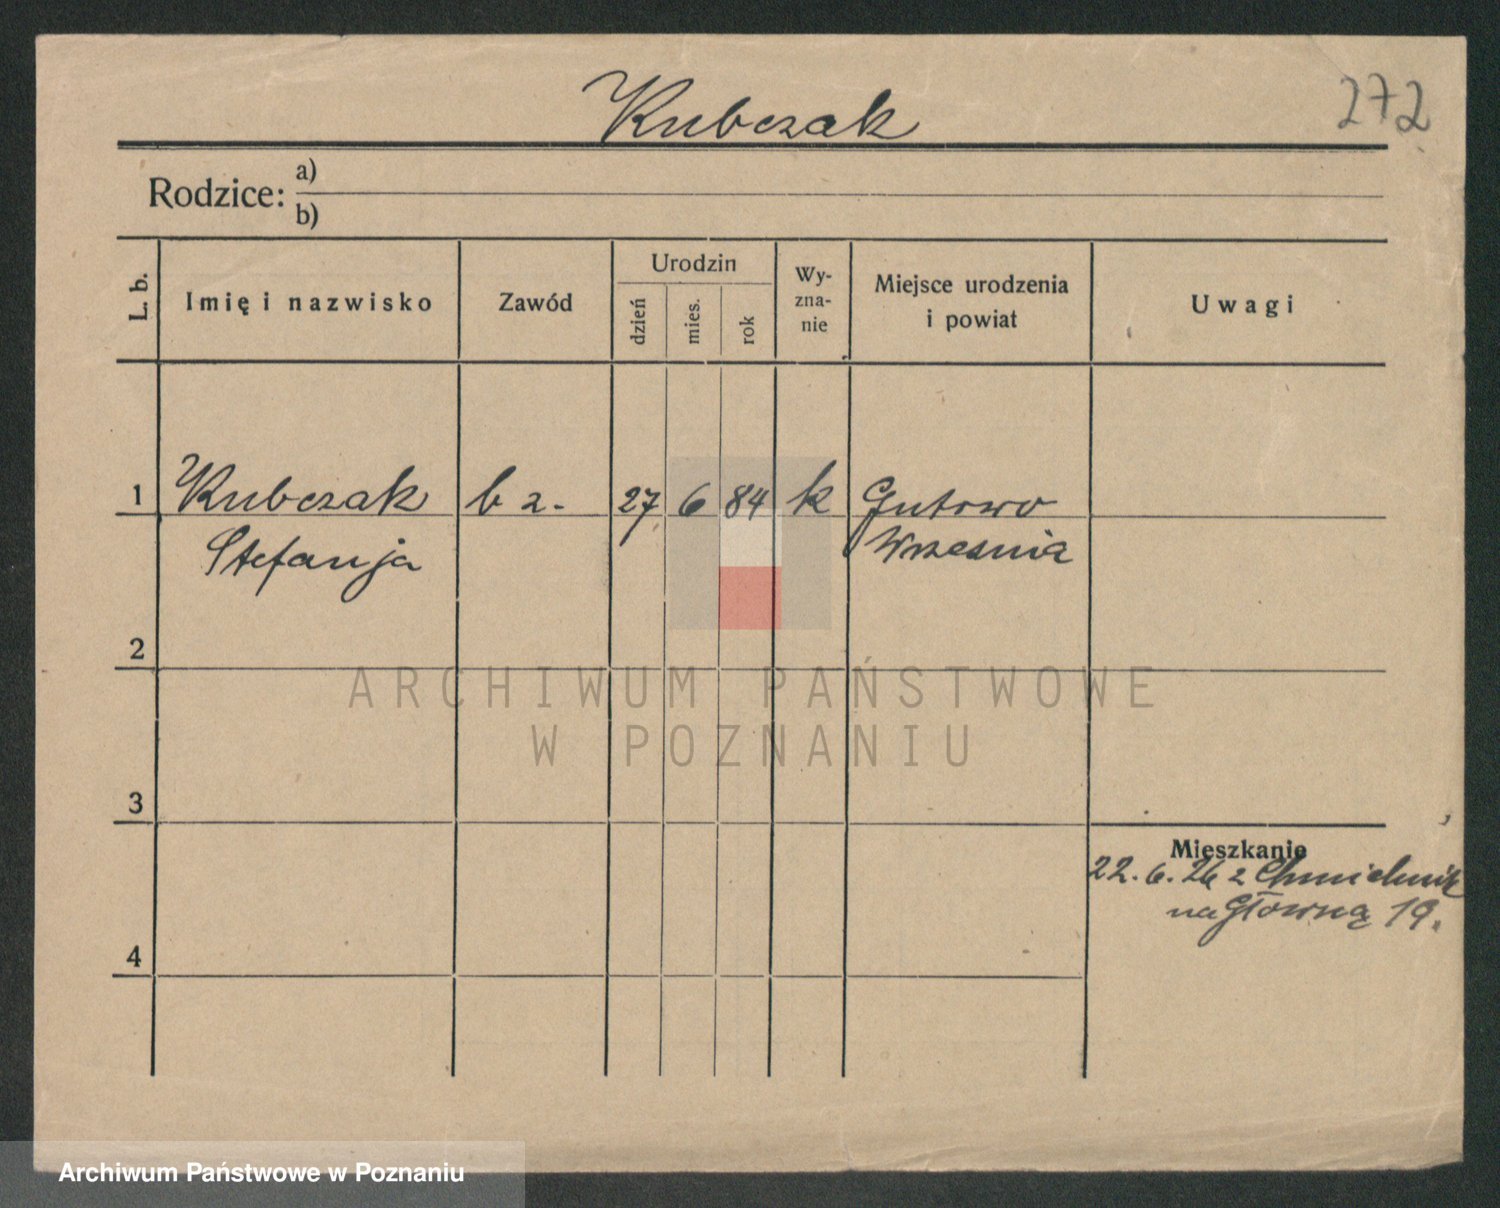 Kubczak
272
Rodzice: a)
b)
L. b.
Imię i nazwisko
Zawód
Urodzin
dzień
mies.
rok
Wy-
zna-
nie
Miejsce urodzenia
i powiat
Uwagi
1 Kubczak b z. 27 6 84 k Gutowo
Stefanja Września
2
ARCHIWUM PAŃSTWOWE
W POZNANIU
3
Mieszkanie
22.6.26 z Chmielnik
na Główną 19.
4
Archiwum Państwowe w Poznaniu